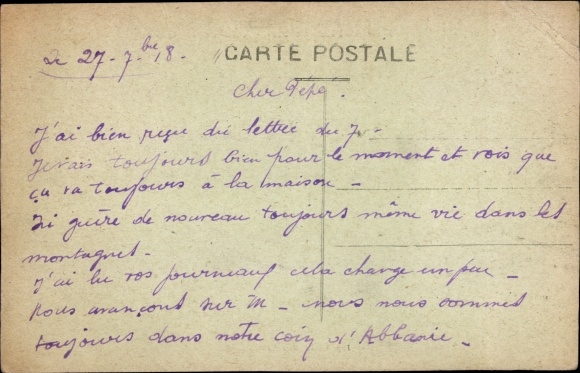 Le 27-7bre 18-
CARTE POSTALE
Cher Pépé.
J'ai bien reçu du lettre du
Je vais toujours bien pour le moment et vois que
ça va toujours à la maison -
Ni guère de nouveau toujours même vie dans les
montagnes -
J'ai lu vos journeaux cela change un peu -
Nous avançons sur M - nous nous sommes
toujours dans notre coin d'Albanie -